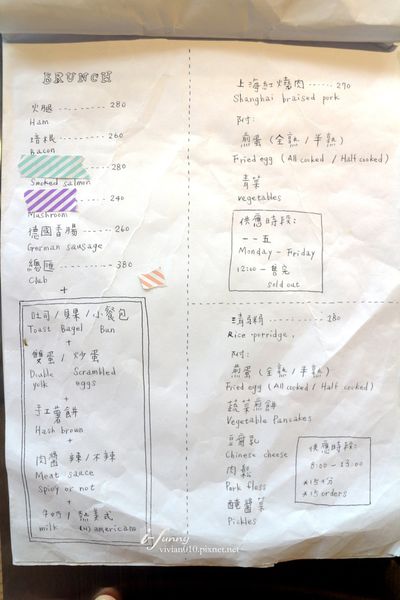 BRUNCH
火腿 -------- 280
Ham
培根 -------- 260
Bacon
280
Smoked salmon
240
Mushroom
德國香腸 ------ 260
German sausage
總匯 -------- 380
Club
+
吐司 / 貝果 / 小餐包
Toast Bagel Bun
+
雙蛋 / 炒蛋
Duble Scrambled
yolk eggs
+
手工薯餅
Hash brown
+
肉醬 辣 / 不辣
Meat sauce
spicy or not
+
牛奶 / 熱美式
milk (H) americano
上海紅燒肉 ------ 270
Shanghai braised pork
附:
煎蛋 (全熟 / 半熟)
Fried egg (All cooked / Half cooked)
青菜
vegetables
供應時段:
一 - 五
Monday - Friday
12:00 - 售完
sold out
清粥 -------- 280
Rice porridge.
附:
煎蛋 (全熟 / 半熟)
Fried egg (All cooked / Half cooked)
蔬菜煎餅
Vegetable Pancakes
豆腐乳
Chinese cheese
肉鬆
Pork floss
醃醬菜
Pickles
供應時段:
8:00 - 13:00
*15份
*15 orders
i-Funny
vivian010.pixnet.net